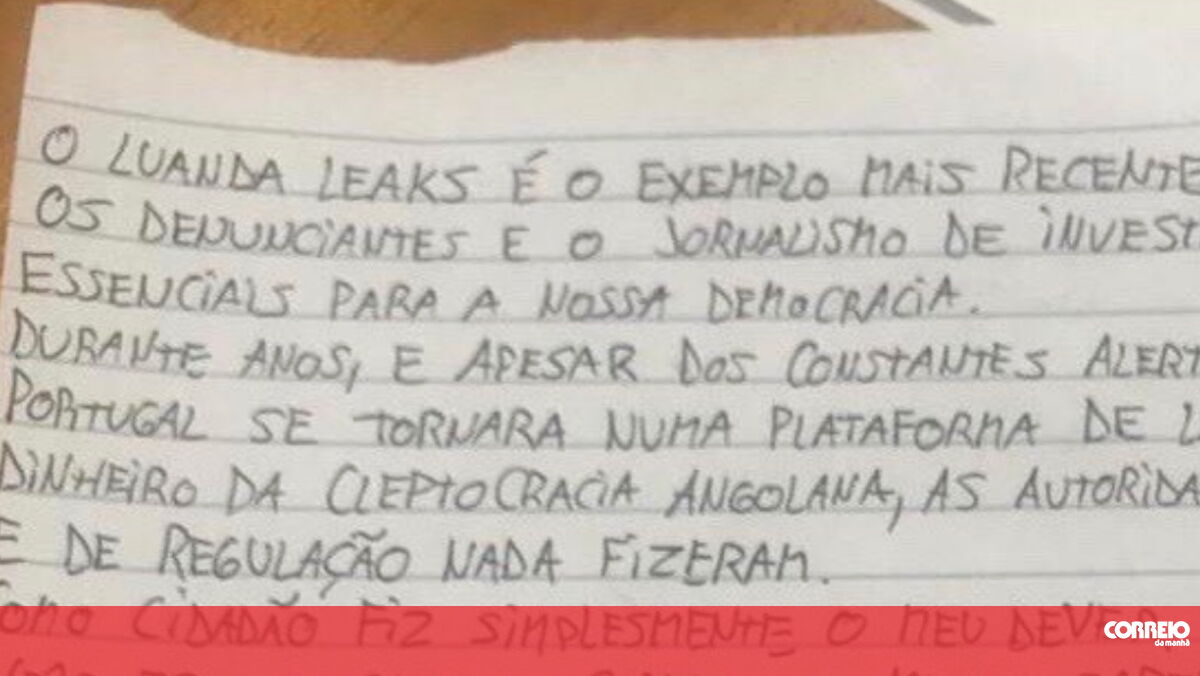 O LUANDA LEAKS É O EXEMPLO MAIS RECENTE
OS DENUNCIANTES E O JORNALISMO DE INVEST
ESSENCIAIS PARA A NOSSA DEMOCRACIA.
DURANTE ANOS, E APESAR DOS CONSTANTES ALERT
PORTUGAL SE TORNARA NUMA PLATAFORMA DE L
DINHEIRO DA CLEPTOCRACIA ANGOLANA, AS AUTORIDA
E DE REGULAÇÃO NADA FIZERAM.
OMO CIDADÃO FIZ SIMPLESMENTE O MEU DEVER
CORREIO
da manhã